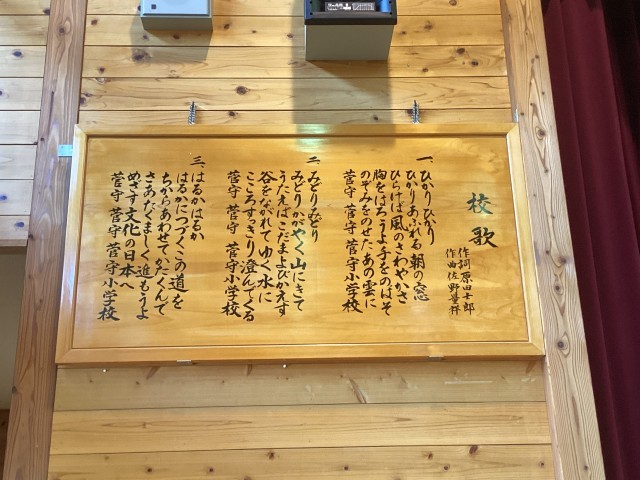 校歌
作詞 原田士郎
作曲 佐野量祥
一、ひかりひかり
ひかりあふれる朝の窓
ひらけば風のさわやかさ
胸をはろうよ手をのばそ
のぞみをのせたあの雲に
菅守 菅守 菅守小学校
二、みどりみどり
みどりかがやく山にきて
うたえばこだまよびかえす
谷をながれてゆく水に
こころすっきり澄んでくる
菅守 菅守 菅守小学校
三、はるかはるか
はるかにつづくこの道を
ちからあわせてかたくんで
さあたくましく進もうよ
めざす文化の日本へ
菅守 菅守 菅守小学校